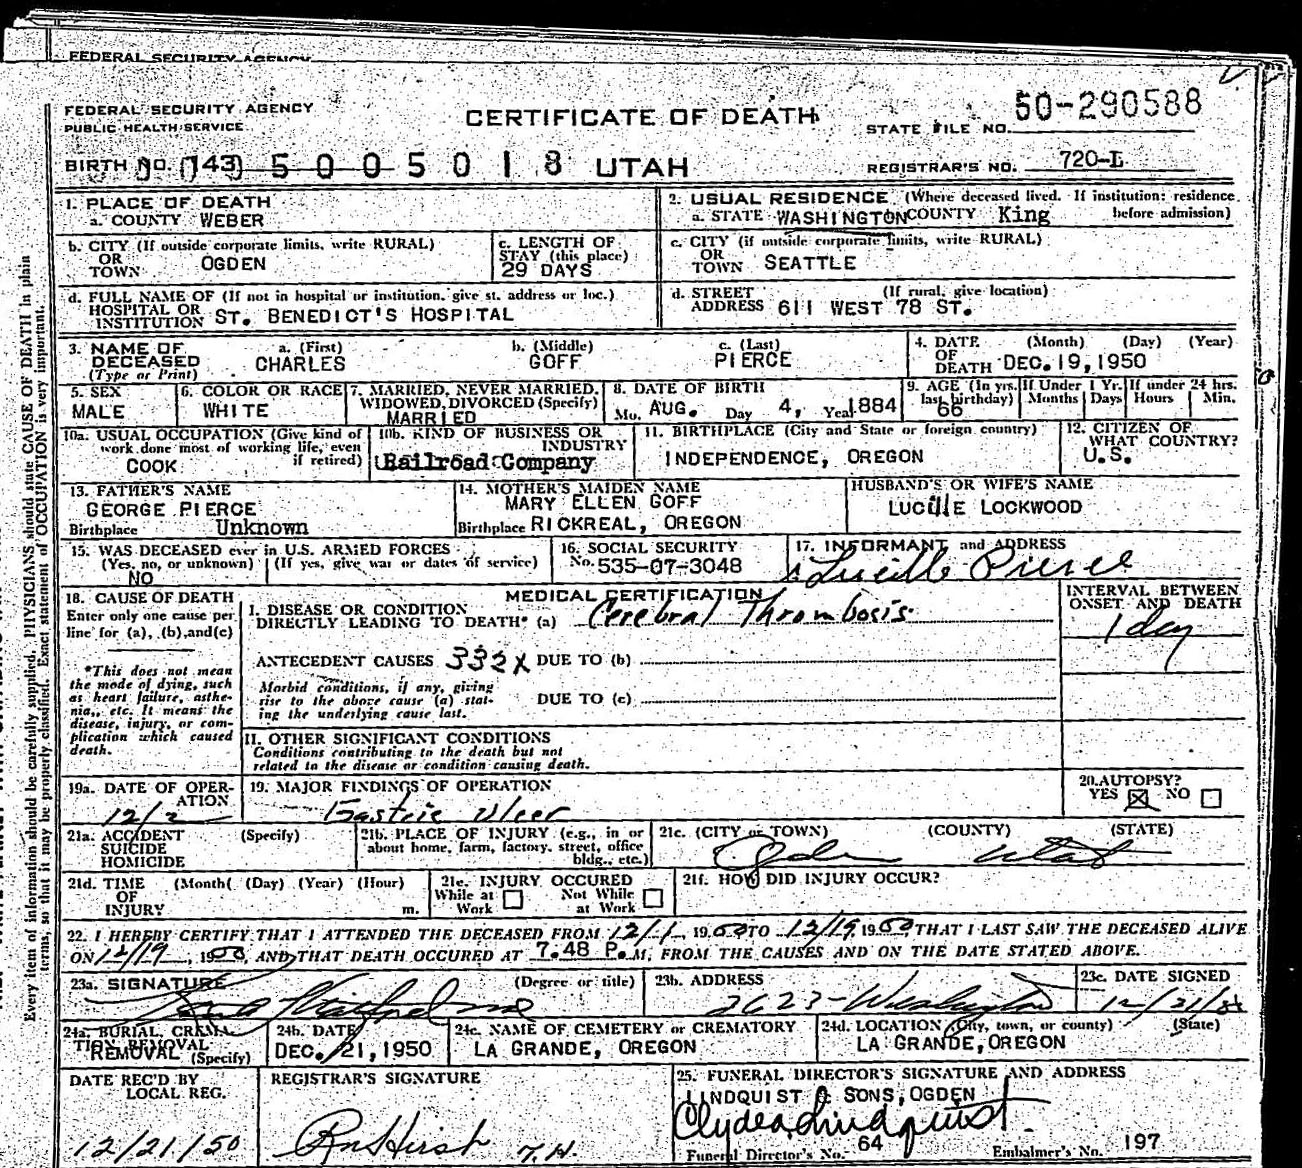 FEDERAL SECURITY AGENCY
FEDERAL SECURITY AGENCY
PUBLIC HEALTH SERVICE
CERTIFICATE OF DEATH
STATE FILE NO. 50-290588
BIRTH NO. (143) 5 0 0 5 0 1 8 UTAH
REGISTRAR'S NO. 720-L
1. PLACE OF DEATH
a. COUNTY WEBER
2. USUAL RESIDENCE (Where deceased lived. If institution: residence before admission)
a. STATE WASHINGTON COUNTY King
b. CITY (If outside corporate limits, write RURAL)
OR TOWN OGDEN
c. LENGTH OF STAY (this place)
29 DAYS
c. CITY (if outside corporate limits, write RURAL)
OR TOWN SEATTLE
d. FULL NAME OF (If not in hospital or institution, give st. address or loc.)
HOSPITAL OR INSTITUTION ST. BENEDICT'S HOSPITAL
d. STREET (If rural, give location)
ADDRESS 611 WEST 78 ST.
3. NAME OF DECEASED (Type or Print)
a. (First) b. (Middle) c. (Last)
CHARLES GOFF PIERCE
4. DATE OF DEATH (Month) (Day) (Year)
DEC. 19, 1950
5. SEX
MALE
6. COLOR OR RACE
WHITE
7. MARRIED, NEVER MARRIED, WIDOWED, DIVORCED (Specify)
MARRIED
8. DATE OF BIRTH
Mo. AUG. Day 4, Year 1884
9. AGE (In yrs. last birthday) 66
If Under 1 Yr. Months Days
If under 24 hrs. Hours Min.
10a. USUAL OCCUPATION (Give kind of work done most of working life, even if retired)
COOK
10b. KIND OF BUSINESS OR INDUSTRY
Railroad Company
11. BIRTHPLACE (City and State or foreign country)
INDEPENDENCE, OREGON
12. CITIZEN OF WHAT COUNTRY?
U.S.
13. FATHER'S NAME
GEORGE PIERCE
Birthplace Unknown
14. MOTHER'S MAIDEN NAME
MARY ELLEN GOFF
Birthplace RICKREAL, OREGON
HUSBAND'S OR WIFE'S NAME
LUCILLE LOCKWOOD
15. WAS DECEASED ever in U.S. ARMED FORCES
(Yes, no, or unknown) (If yes, give war or dates of service)
NO
16. SOCIAL SECURITY
No. 535-07-3048
17. INFORMANT and ADDRESS
Lucille Pierce
18. CAUSE OF DEATH
Enter only one cause per line for (a), (b), and (c)
*This does not mean the mode of dying, such as heart failure, asthenia, etc. It means the disease, injury, or complication which caused death.
MEDICAL CERTIFICATION
I. DISEASE OR CONDITION DIRECTLY LEADING TO DEATH* (a) Cerebral Thrombosis
INTERVAL BETWEEN ONSET AND DEATH
1 day
ANTECEDENT CAUSES 332X DUE TO (b)
Morbid conditions, if any, giving rise to the above cause (a) stating the underlying cause last.
DUE TO (c)
II. OTHER SIGNIFICANT CONDITIONS
Conditions contributing to the death but not related to the disease or condition causing death.
19a. DATE OF OPERATION
12/2
19. MAJOR FINDINGS OF OPERATION
Gastric Ulcer
20. AUTOPSY?
YES ☒ NO ☐
21a. ACCIDENT SUICIDE HOMICIDE (Specify)
21b. PLACE OF INJURY (e.g., in or about home, farm, factory, street, office bldg., etc.)
21c. (CITY or TOWN) (COUNTY) (STATE)
Ogden Utah
21d. TIME OF INJURY (Month) (Day) (Year) (Hour) m.
21e. INJURY OCCURED
While at Work ☐ Not While at Work ☐
21f. HOW DID INJURY OCCUR?
22. I HEREBY CERTIFY THAT I ATTENDED THE DECEASED FROM 12/1, 1950 TO 12/19, 1950 THAT I LAST SAW THE DECEASED ALIVE
ON 12/19, 1950, AND THAT DEATH OCCURED AT 7.48 P.M, FROM THE CAUSES AND ON THE DATE STATED ABOVE.
23a. SIGNATURE (Degree or title)
23b. ADDRESS
2623 Washington
23c. DATE SIGNED
12/21/50
24a. BURIAL, CREMATION, REMOVAL (Specify)
REMOVAL
24b. DATE
DEC. 21, 1950
24c. NAME OF CEMETERY or CREMATORY
LA GRANDE, OREGON
24d. LOCATION (City, town, or county) (State)
LA GRANDE, OREGON
DATE REC'D BY LOCAL REG.
12/21/50
REGISTRAR'S SIGNATURE
25. FUNERAL DIRECTOR'S SIGNATURE AND ADDRESS
LINDQUIST & SONS, OGDEN
Clyde Lindquist
Funeral Director's No. 64 Embalmer's No. 197
Every item of information should be carefully supplied. PHYSICIANS should state CAUSE OF DEATH in plain
terms, so that it may be properly classified. Exact statement of OCCUPATION is very important.